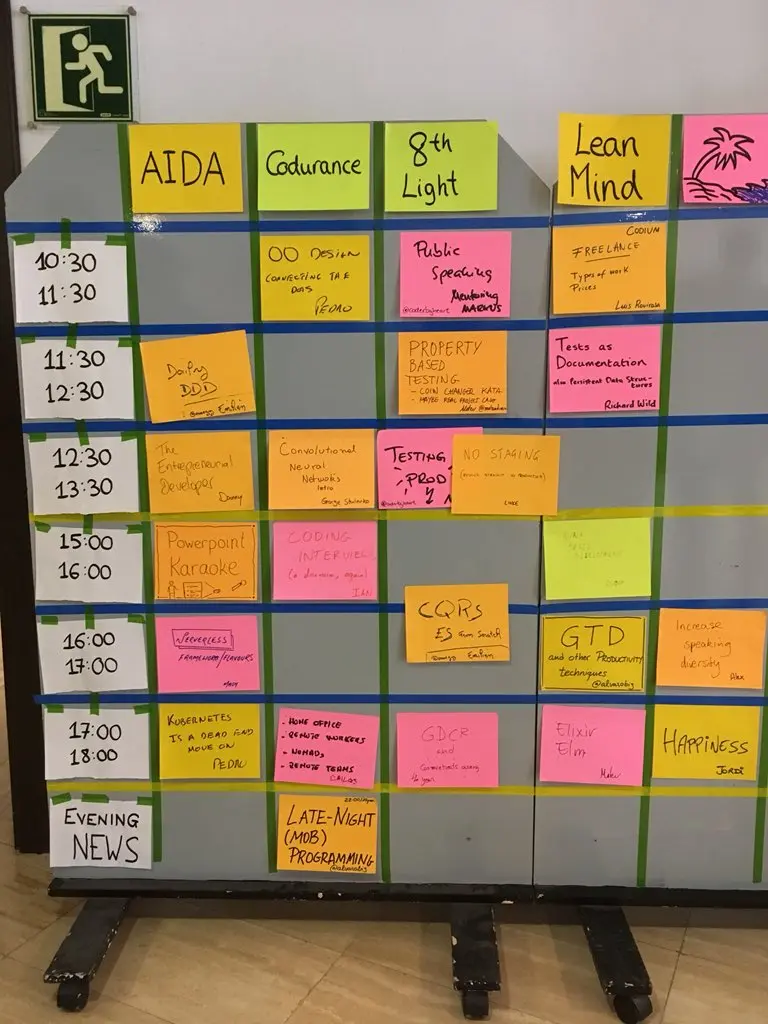 AIDA
Codurance
8th
Light
Lean
Mind
10:30
11:30
OO DESIGN
CONNECTING THE
DOTS
PEDRO
Public
Speaking
Mentoring
MARKUS
CODIUM
FREELANCE
Types of work
Prices
Luis Rovirosa
11:30
12:30
Daily
DDD
Emilien
PROPERTY
BASED
TESTING
- COIN CHANGER KATA
- MAYBE REAL PROJECT CASE
Tests as
Documentation
also Persistent Data Struc-
tures
Richard Wild
12:30
13:30
The
Entrepreneurial
Developer
Danny
Convolutional
Neural
Networks
Intro
George
TESTING
PROD
NO STAGING
15:00
16:00
Powerpoint
Karaoke
CODING
INTERVIEW
(a discussion, again)
IAN
16:00
17:00
SERVERLESS
FRAMEWORK/FLAVOURS
CQRS
ES from scratch
Emilien
GTD
and other PRODUCTIVITY
techniques
@alvarobiz
Increase
speaking
diversity
Alex
17:00
18:00
KUBERNETES
IS A DEAD END
MOVE ON
PEDRO
- HOME OFFICE
- REMOTE WORKERS
- NOMADS
- REMOTE TEAMS
CARLOS
GDCR
and
Elixir
Elm
HAPPINESS
JORDI
EVENING
NEWS
LATE-NIGHT
(MOB)
PROGRAMMING
@alvarobiz